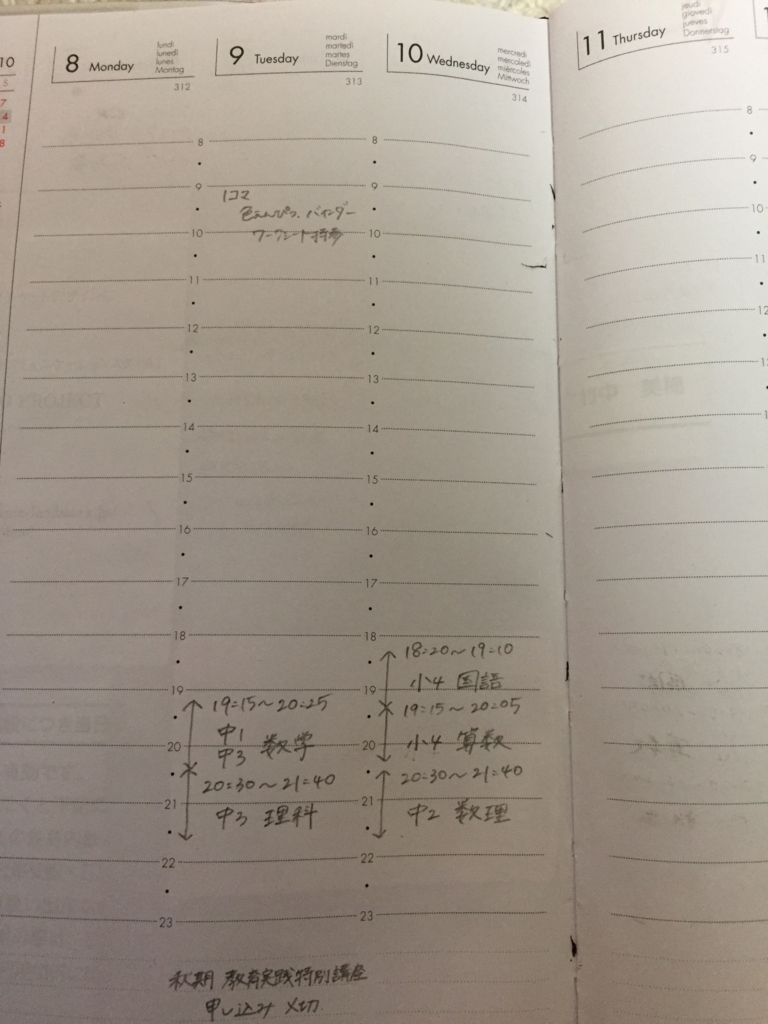 10
5
7
4
1
8
8 Monday
lundi
lunedì
lunes
Montag
312
9 Tuesday
mardi
martedì
martes
Dienstag
313
10 Wednesday
mercredi
mercoledì
miércoles
Mittwoch
314
11 Thursday
jeudi
giovedì
jueves
Donnerstag
315
8
9
10
11
12
13
14
15
16
17
18
19
20
21
22
23
1コマ
色えんぴつ、バインダー
ワークシート持参
19:15～20:25
中1
中3 数学
20:30～21:40
中3 理科
秋期 教育実践特別講座
申し込み 〆切
8
9
10
11
12
13
14
15
16
17
18
19
20
21
22
23
18:20～19:10
小4 国語
19:15～20:05
小4 算数
20:30～21:40
中2 数理
8
9
10
11
12